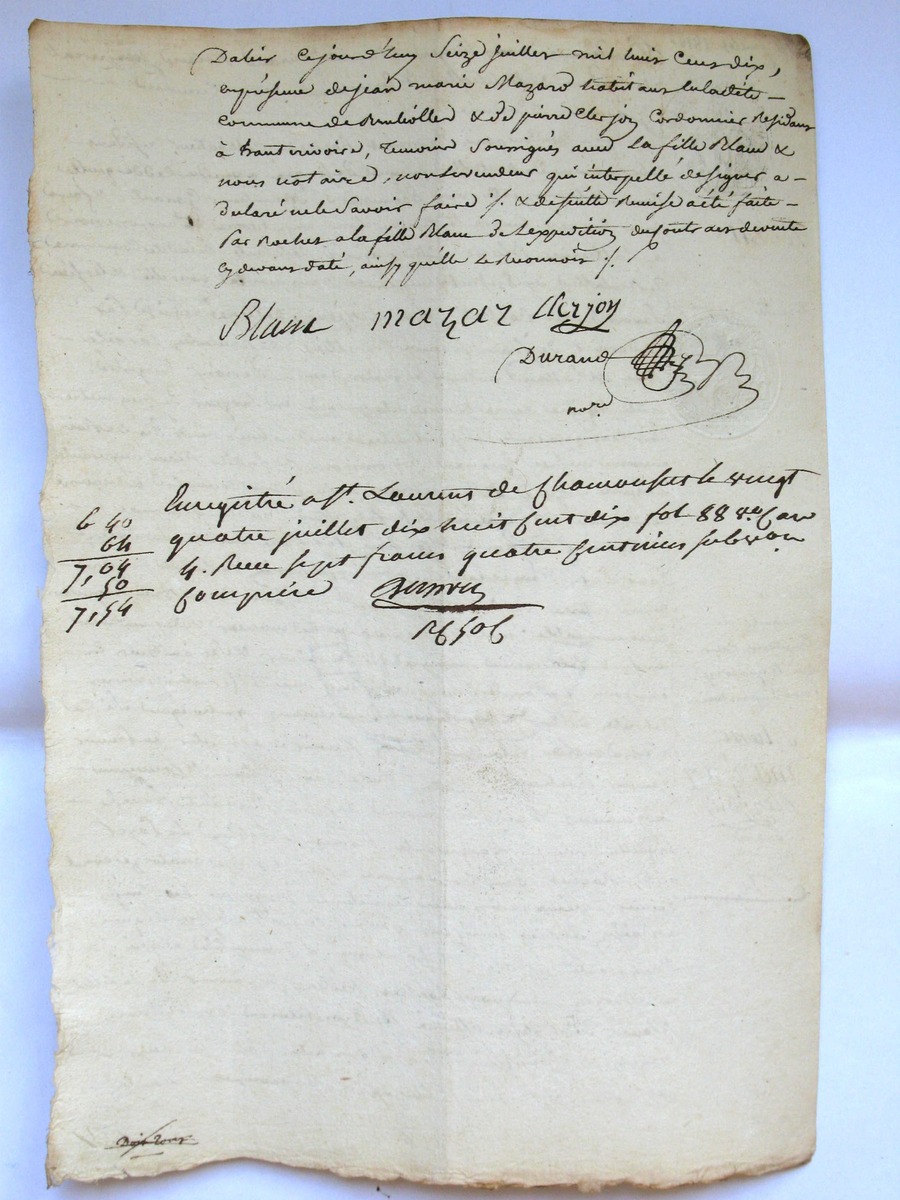 Dalier cejourd'huy Seize juillet mil huit Cent dix,
en présence de jean marie Mazard habitant en ladite
commune de & de pierre Clerjon Cordonnier Residant
à hauterivoire, temoins Soussignés avec la fille Blanc &
nous notaire, non le vendeur qui interpellé de signer a
declaré ne le Savoir faire ./. & de suitte Remise a été faite
par Rochet a la fille Blanc de l'expedition du de vente
cy devant daté, ainsy qu'elle le Reconnoit ./.
Blanc mazar Clerjon
Durand
nore
Enregistré a St. Laurent de Chamousset le vingt
quatre juillet dix huit Cent dix fol 88 vo. Case
4. Recu sept francs quatre Centimes subvon
Comprise
6 40
64
7,04
50
7,54